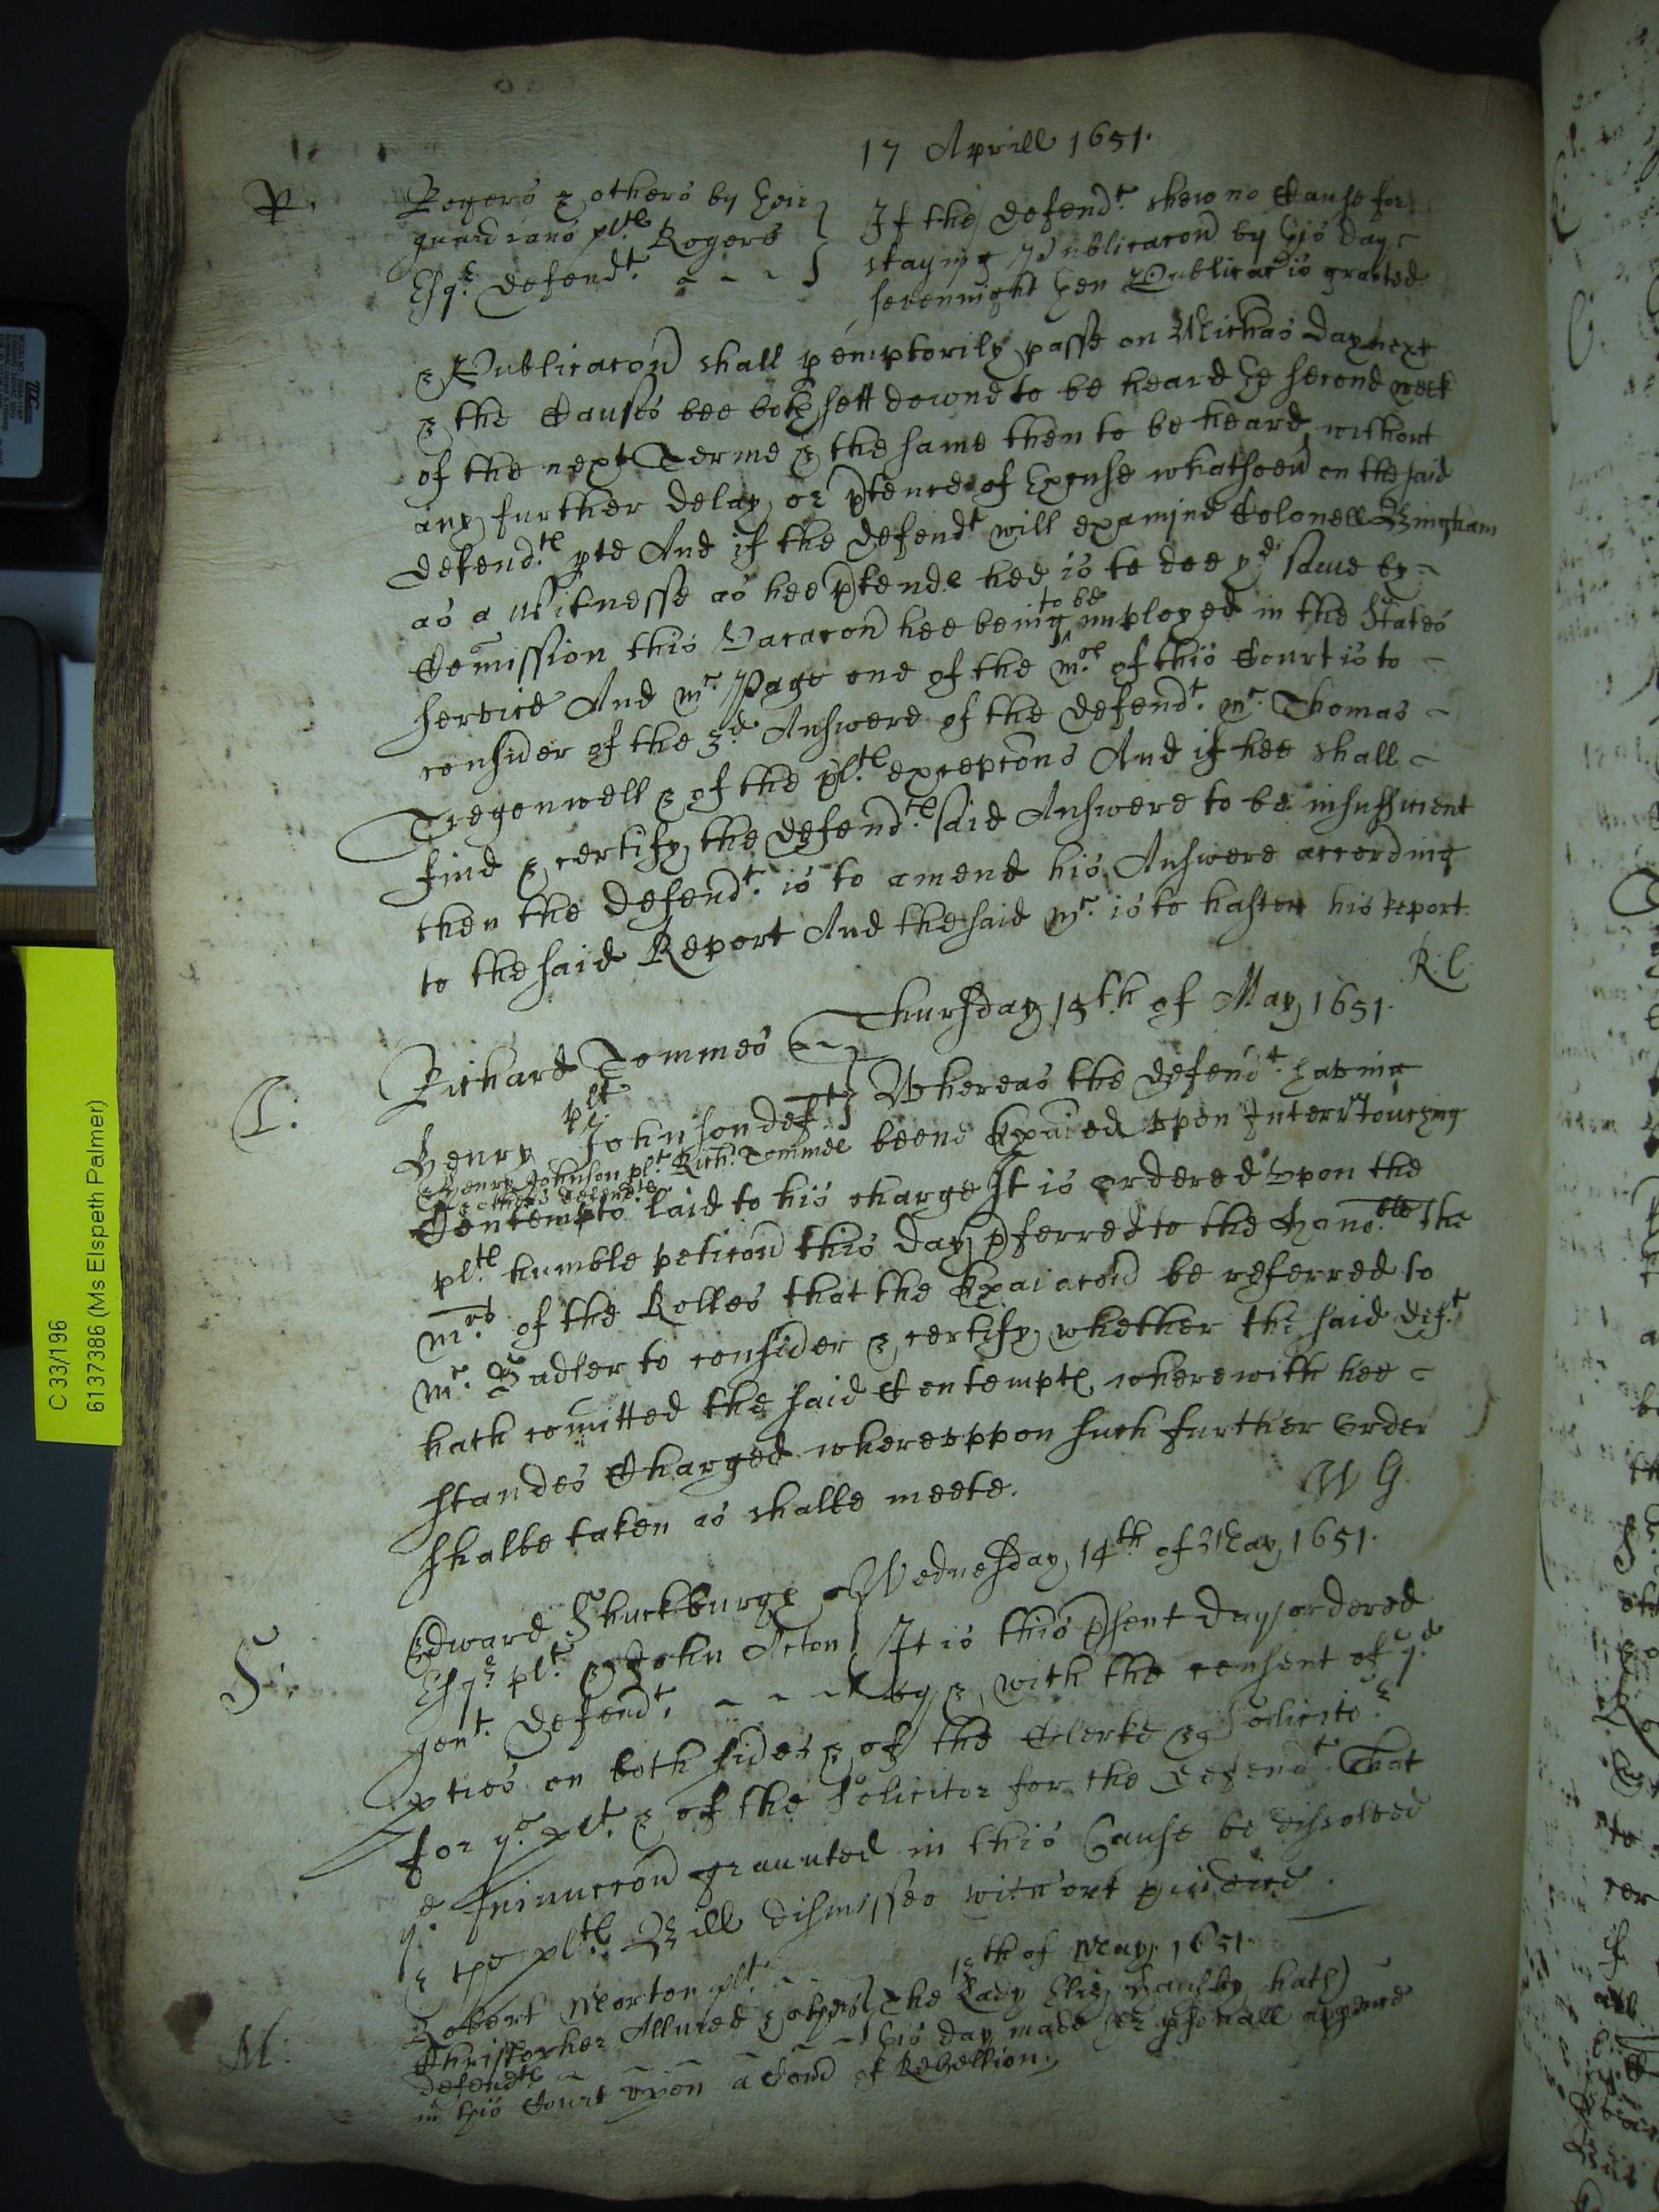 17 Aprill 1651.
R.
Rogers & others by their
guardians plts Rogers
Esqr defendt
If the defendt shew no Cause for
staying Publicacon by this day
sevennight then Publicac is granted
& Publicacon shall pemptorily passe on Michas day next
& the Causes bee both sett downe to be heard the second week
of the next Terme & the same then to be heard without
any further delay or ptence of Excuse whatsoeu on the said
defendts pte And if the defendt will examine Colonell Bingham
as a Witnesse as hee ptends hee is to doe ye same by
Comission this Vacacon hee being to be imployed in the States
service And mr Page one of the mrs of this Court is to
consider of the 3d Answere of the defendt mr Thomas
Tregonwell & of the plts excepcons And if hee shall
find & certify the defendts said Answere to be insufficient
then the defendt is to amend his Answere according
to the said Report And the said mr is to hasten his report.
R. C.
Thursday 15th of May 1651.
T:
Richard Tommes
plt
Henry Johnson deft
Henry Johnson plt Richd Tommes
& others defendts
Whereas the defendt having
beene Exaied upon Interr touching
Contempts laid to his charge It is ordered upon the
plts humble peticon this day pferred to the Honoble the
mrs of the Rolles that the Exaiacon be referred to
mr Sadler to consider & certify whether the said deft
hath comitted the said Contempts wherewith hee
standes Charged whereuppon such further Order
shalbe taken as shalbe meete.
W G.
Wednesday 14th of May 1651.
S:
Edward Shuckburgh
Esqr plt John Acton
gent defendt
It is this psent day ordered
by & with the consent of ye
pties on both sides & of the Clerke & Solicitor
for ye plt & of the Solicitor for the defendt That
ye Iniunccon graunted in this Cause be dissolved
& the plts Bill dismissed without piudice.
15th of May 1651
M:
Robert Morton plt
Christopher Allured & others
defendts
The Lady Eliz hath
this day made her psonall appence
in this Court upon a Comd of Rebellion.
C 33/196
6137386 (Ms Elspeth Palmer)